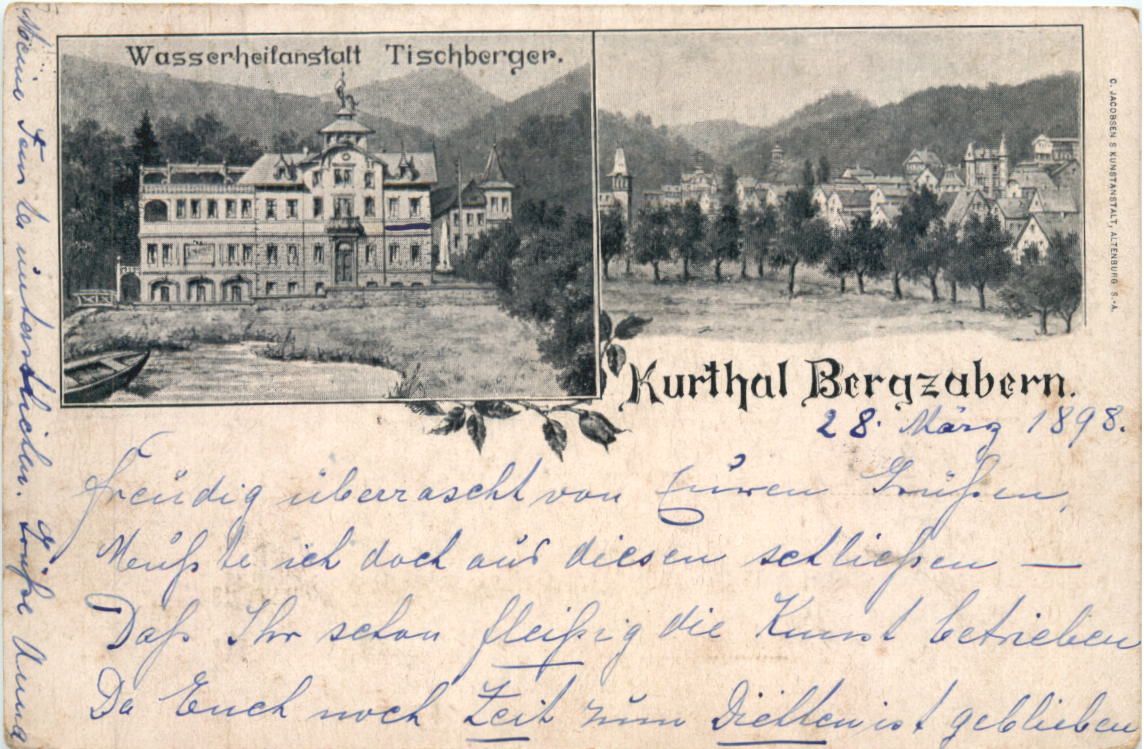 Wasserheilanstalt Tischberger.
C. JACOBSEN'S KUNSTANSTALT, ALTENBURG S.-A.
Kurthal Bergzabern.
28. März 1898.
Freudig überrascht von Euren Grüßen,
Mußte ich doch aus diesen schließen —
Daß Ihr schon fleißig die Kunst betrieben
Da Euch noch Zeit zum ist geblieben
Meine Fenster unterstrichen. Grüße Anna